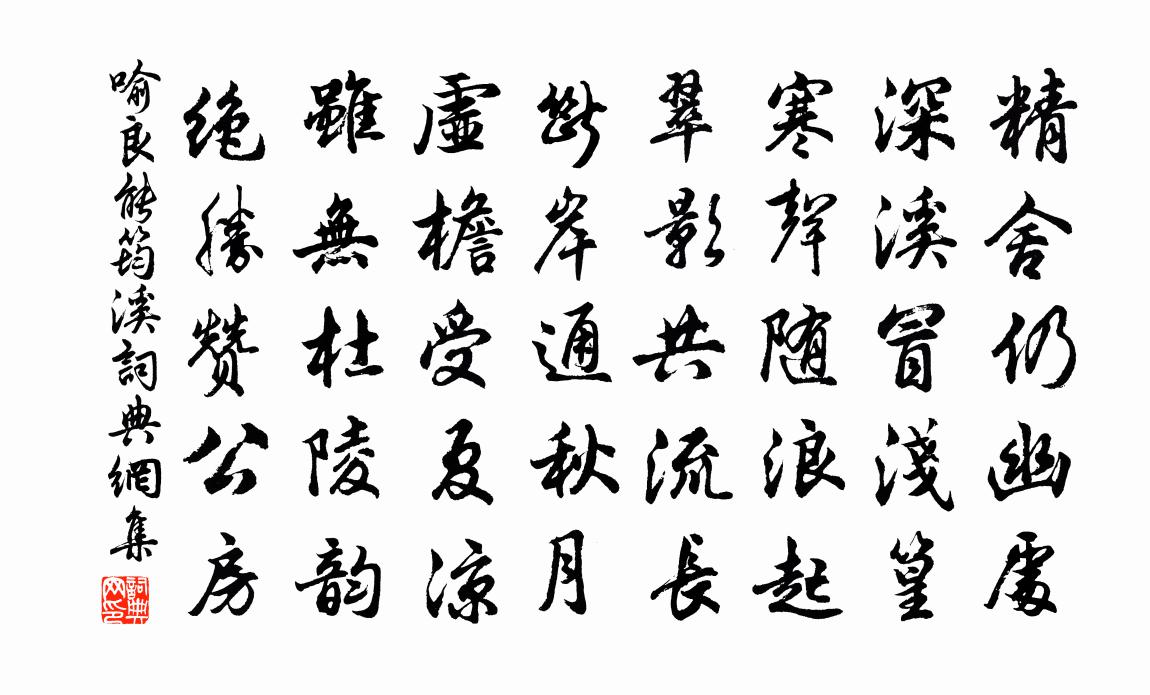 精舍仍幽處
深溪冒淺篁
寒聲随浪起
翠影共流長
斷岸通秋月
虛檐受夏涼
雖無杜陵韵
絶勝贊公房
喻良能筠溪詞典網集
詞典網印